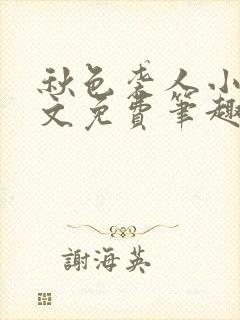 秋色袭人小
文免費筆趣
謝海英